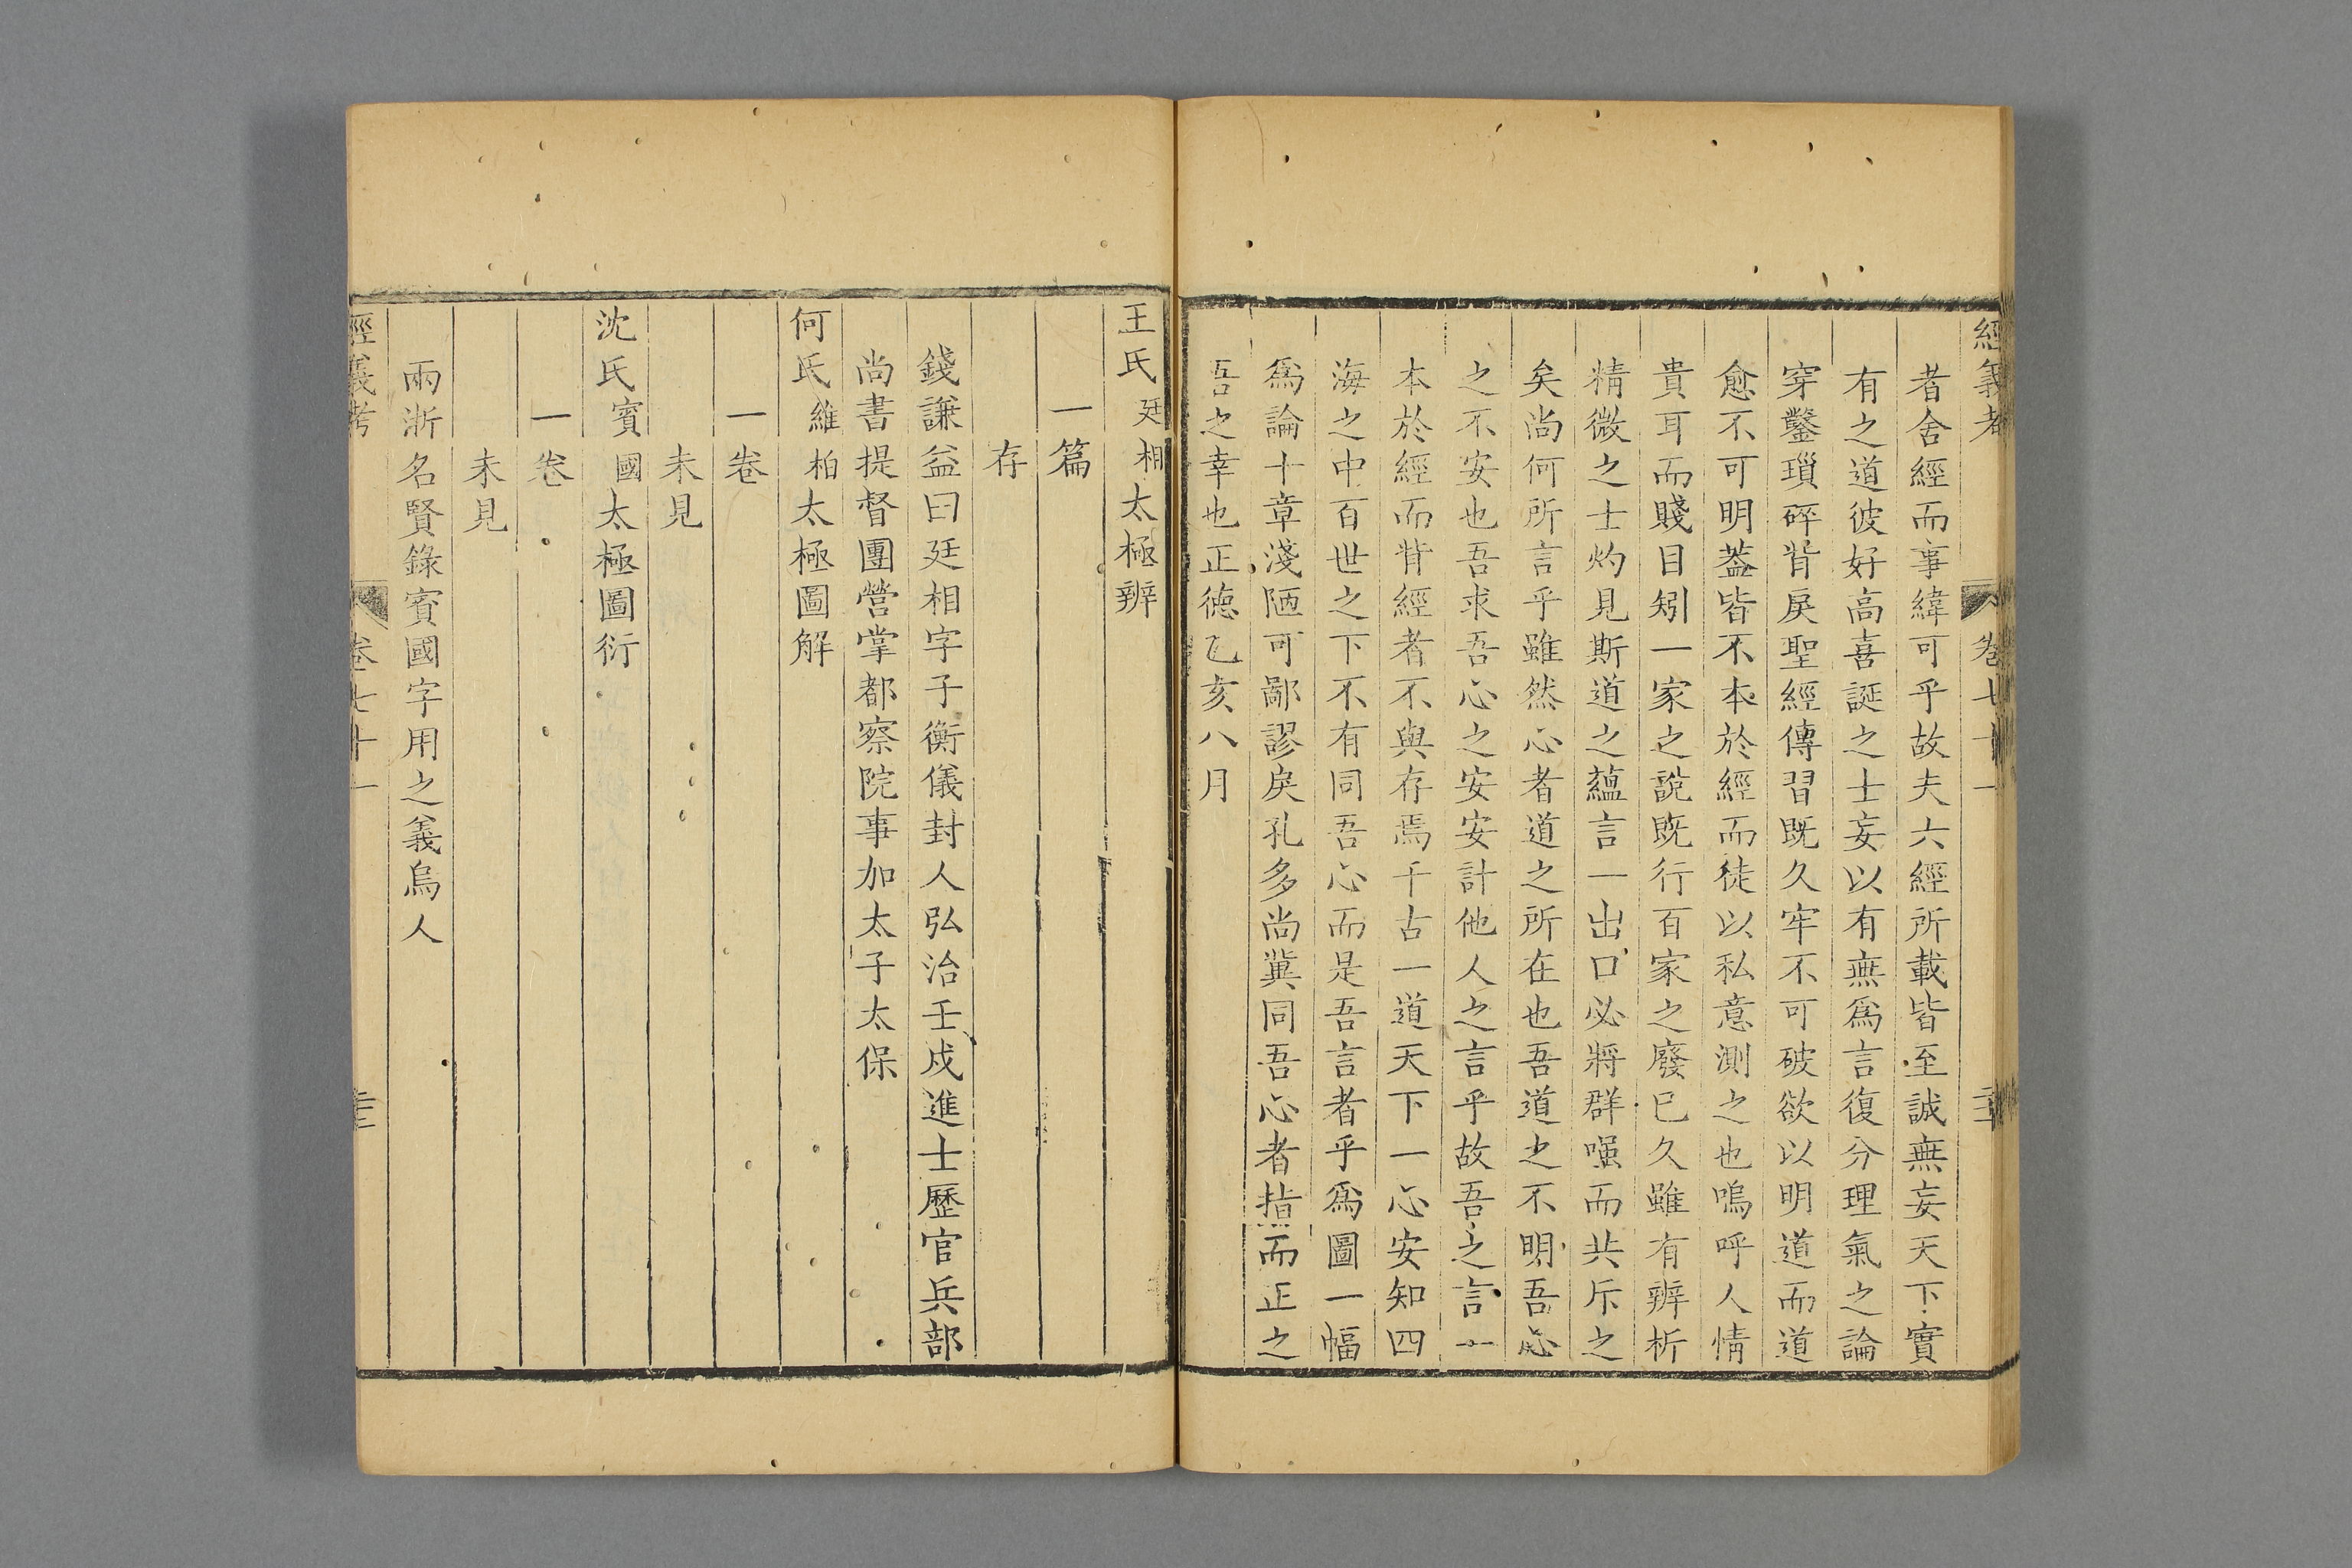 經義考 卷七十一
者舍經而事緯可乎故夫六經所載皆至誠無妄天下實
有之道彼好高喜誕之士妄以有無爲言復分理氣之論
穿鑿瑣碎背戾聖經傳習既久牢不可破欲以明道而道
愈不可明葢皆不本於經而徒以私意測之也嗚呼人情
貴耳而賤目矧一家之說既行百家之廢巳久雖有辨析
精微之士灼見斯道之蘊言一出口必將群嗤而共斥之
矣尚何所言乎雖然心者道之所在也吾道之不明吾心
之不安也吾求吾心之安安計他人之言乎故吾之言一
本於經而背經者不與存焉千古一道天下一心安知四
海之中百世之下不有同吾心而是吾言者乎爲圖一幅
爲論十章淺陋可鄙謬戾孔多尚冀同吾心者指而正之
吾之幸也正德乙亥八月
王氏廷相太極辨
一篇
存
錢謙益曰廷相字子衡儀封人弘治壬戌進士歷官兵部
尚書提督團營掌都察院事加太子太保
何氏維柏太極圖解
一卷
未見
沈氏賓國太極圖衍
一卷
未見
兩浙名賢錄賓國字用之義烏人
經義考 卷七十一